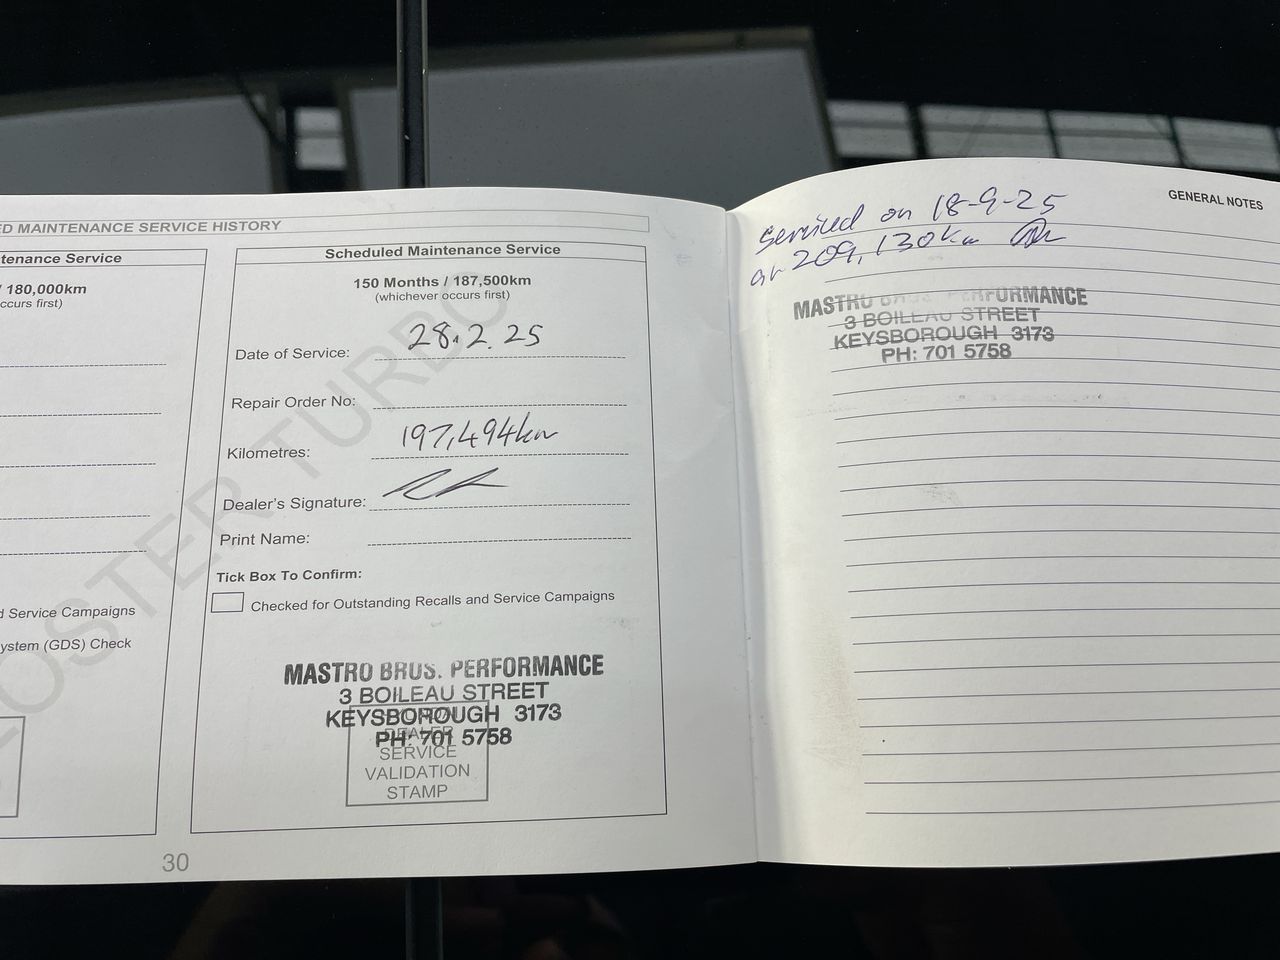 D MAINTENANCE SERVICE HISTORY
tenance Service
/ 180,000km
ccurs first)
d Service Campaigns
ystem (GDS) Check
OSTER TURBO
Scheduled Maintenance Service
150 Months / 187,500km
(whichever occurs first)
Date of Service: 28.2.25
Repair Order No:
Kilometres: 197,494km
Dealer's Signature:
Print Name:
Tick Box To Confirm:
Checked for Outstanding Recalls and Service Campaigns
MASTRO BROS. PERFORMANCE
3 BOILEAU STREET
KEYSBOROUGH 3173
PH: 701 5758
DEALER
SERVICE
VALIDATION
STAMP
30
GENERAL NOTES
Serviced on 18-9-25
at 209,130km
MASTRO BROS. PERFORMANCE
3 BOILEAU STREET
KEYSBOROUGH 3173
PH: 701 5758